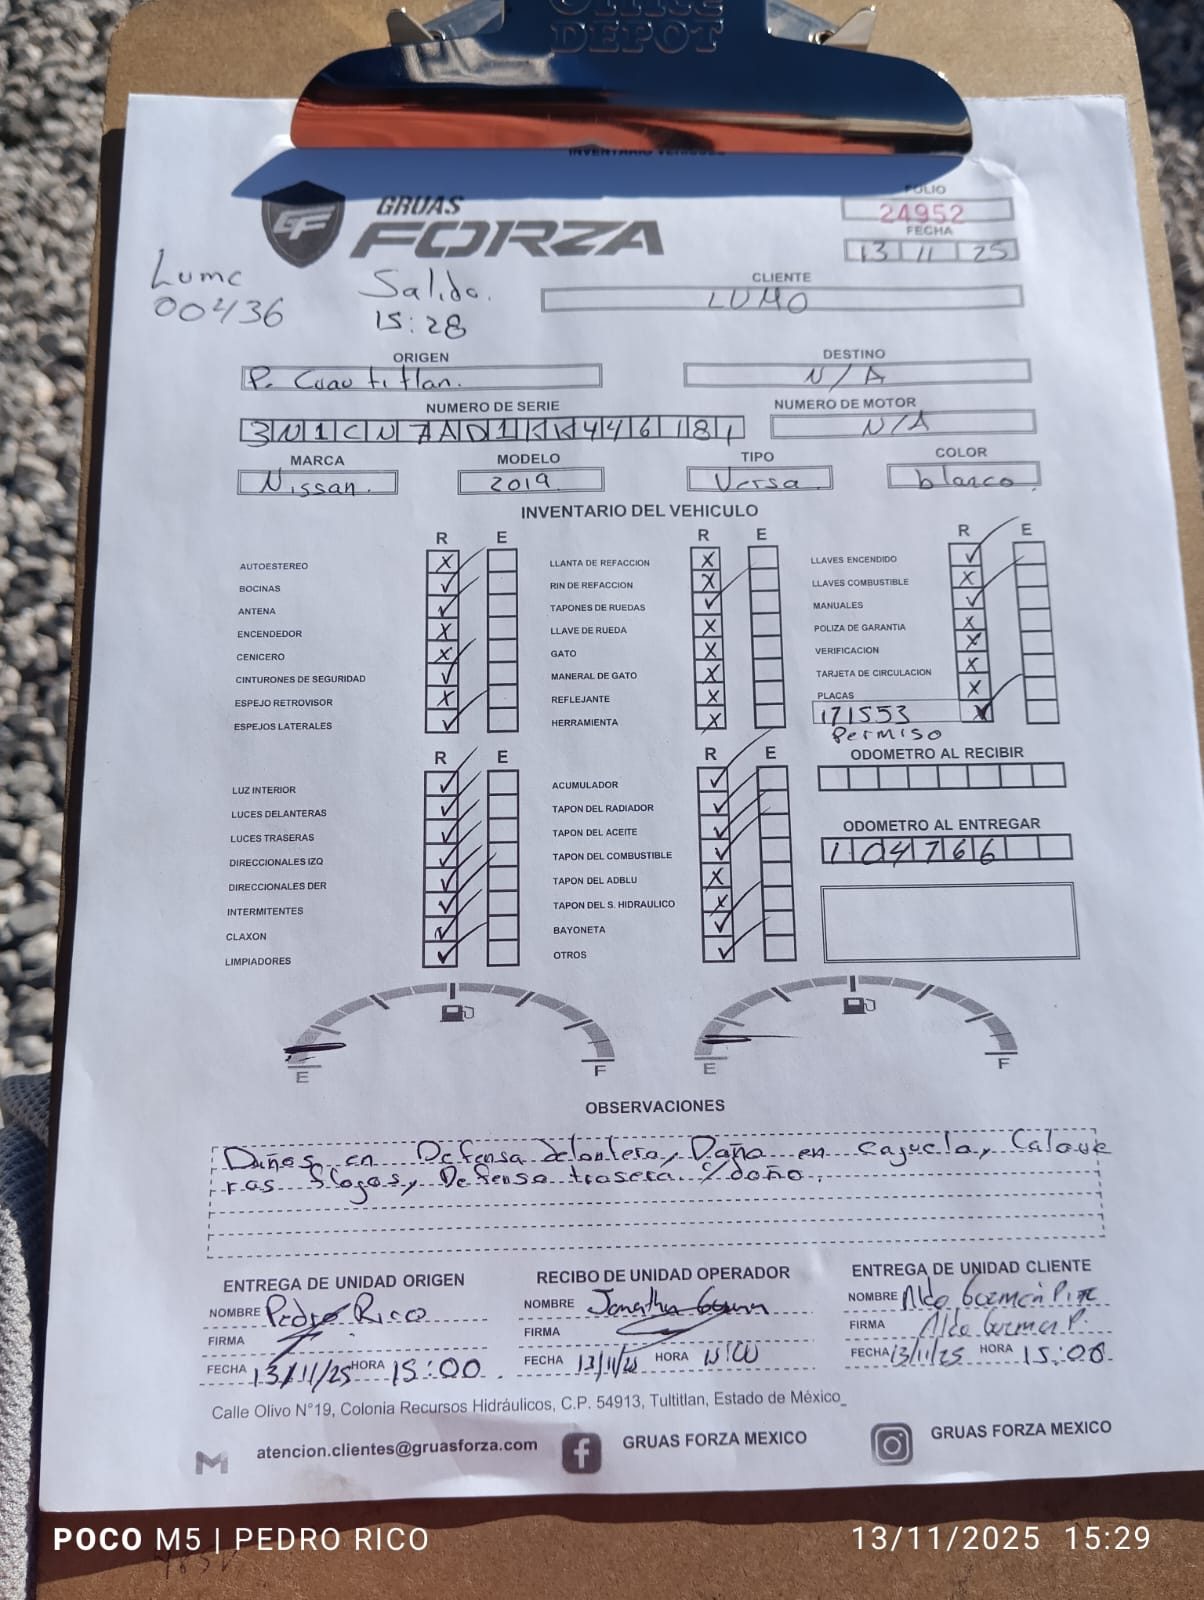 Office
DEPOT
INVENTARIO VEHICULO
GF
GRUAS
FORZA
FOLIO
24952
FECHA
13 11 25
Lumo
00436
Salida.
15:28
CLIENTE
LUMO
ORIGEN
P. Cuautitlan.
DESTINO
N/A
NUMERO DE SERIE
3N1CN7AD1KK446181
NUMERO DE MOTOR
N/A
MARCA
Nissan.
MODELO
2019
TIPO
Versa
COLOR
blanco.
INVENTARIO DEL VEHICULO
R E
AUTOESTEREO X
BOCINAS ✓
ANTENA ✓
ENCENDEDOR X
CENICERO X
CINTURONES DE SEGURIDAD ✓
ESPEJO RETROVISOR X
ESPEJOS LATERALES ✓
R E
LLANTA DE REFACCION X
RIN DE REFACCION X
TAPONES DE RUEDAS ✓
LLAVE DE RUEDA X
GATO X
MANERAL DE GATO X
REFLEJANTE X
HERRAMIENTA X
R E
LLAVES ENCENDIDO ✓
LLAVES COMBUSTIBLE X
MANUALES ✓
POLIZA DE GARANTIA X
VERIFICACION X
TARJETA DE CIRCULACION X
PLACAS X
171553
Permiso
R E
LUZ INTERIOR ✓
LUCES DELANTERAS ✓
LUCES TRASERAS ✓
DIRECCIONALES IZQ ✓
DIRECCIONALES DER ✓
INTERMITENTES ✓
CLAXON ✓
LIMPIADORES ✓
R E
ACUMULADOR ✓
TAPON DEL RADIADOR ✓
TAPON DEL ACEITE ✓
TAPON DEL COMBUSTIBLE ✓
TAPON DEL ADBLU X
TAPON DEL S. HIDRAULICO X
BAYONETA ✓
OTROS ✓
ODOMETRO AL RECIBIR
ODOMETRO AL ENTREGAR
104766
E F
E F
OBSERVACIONES
Daños en Defensa delantera, Daño en cajuela, Calave
ras flojas, Defensa trasera c/daño.
ENTREGA DE UNIDAD ORIGEN
NOMBRE Pedro Rico
FIRMA
FECHA 13/11/25 HORA 15:00
RECIBO DE UNIDAD OPERADOR
NOMBRE Jonathan
FIRMA
FECHA 13/11/25 HORA 15:00
ENTREGA DE UNIDAD CLIENTE
NOMBRE Aldo Guzmán
FIRMA Aldo Guzman P.
FECHA 13/11/25 HORA 15:00
Calle Olivo N°19, Colonia Recursos Hidráulicos, C.P. 54913, Tultitlan, Estado de México_
atencion.clientes@gruasforza.com
GRUAS FORZA MEXICO
GRUAS FORZA MEXICO
POCO M5 | PEDRO RICO
13/11/2025 15:29